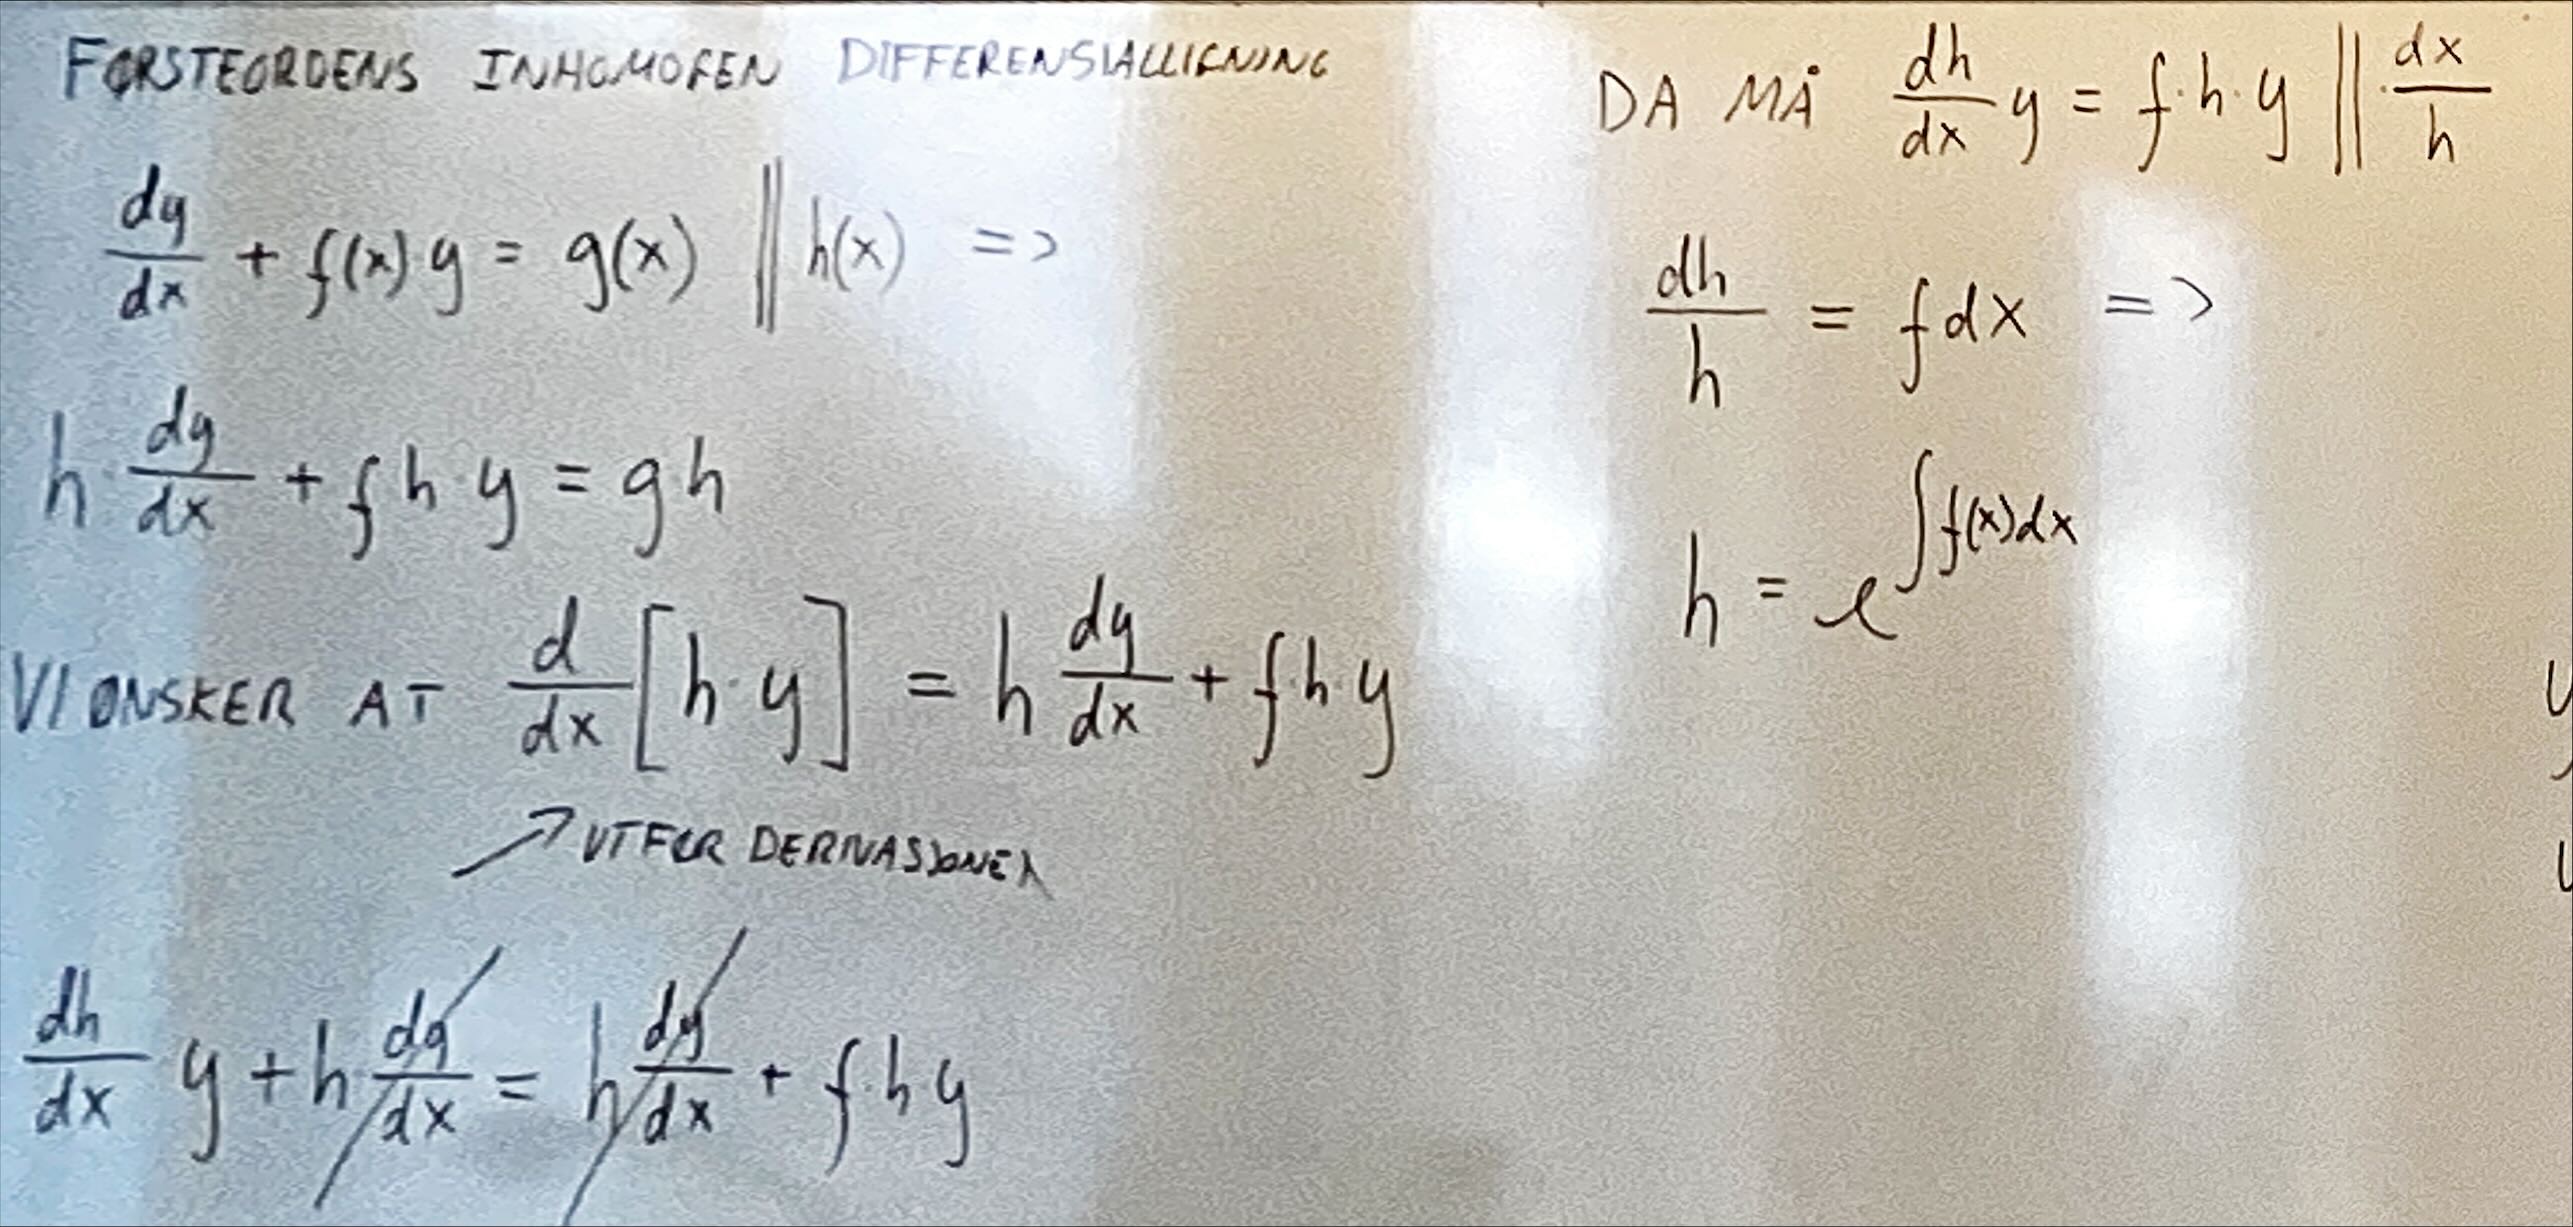 FØRSTEORDENS INHOMOGEN DIFFERENSIALLIGNING
dy/dx + f(x) y = g(x) || h(x) =>
h · dy/dx + f h · y = g h
VI ØNSKER AT d/dx [h · y] = h dy/dx + f · h · y
↗ UTFØR DERIVASJONEN
dh/dx y + h dy/dx = h dy/dx + f · h y
DA MÅ dh/dx y = f · h · y || · dx/h
dh/h = f dx =>
h = e^∫f(x)dx